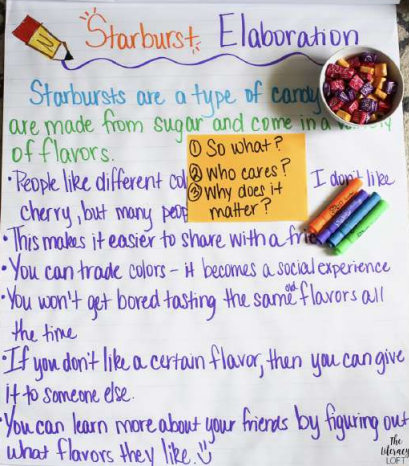 Starburst Elaboration
Starbursts are a type of candy
are made from sugar and come in a
of flavors.
• People like different I don't like
cherry, but many
• This makes it easier to share with a
• You can trade colors - it becomes a social experience
• You won't get bored tasting the same old flavors all
the time
• If you don't like a certain flavor, then you can give
it to someone else.
• You can learn more about your friends by figuring out
what flavors they like.
① So what?
② Who cares?
③ Why does it
matter?
The
Literacy
LOFT